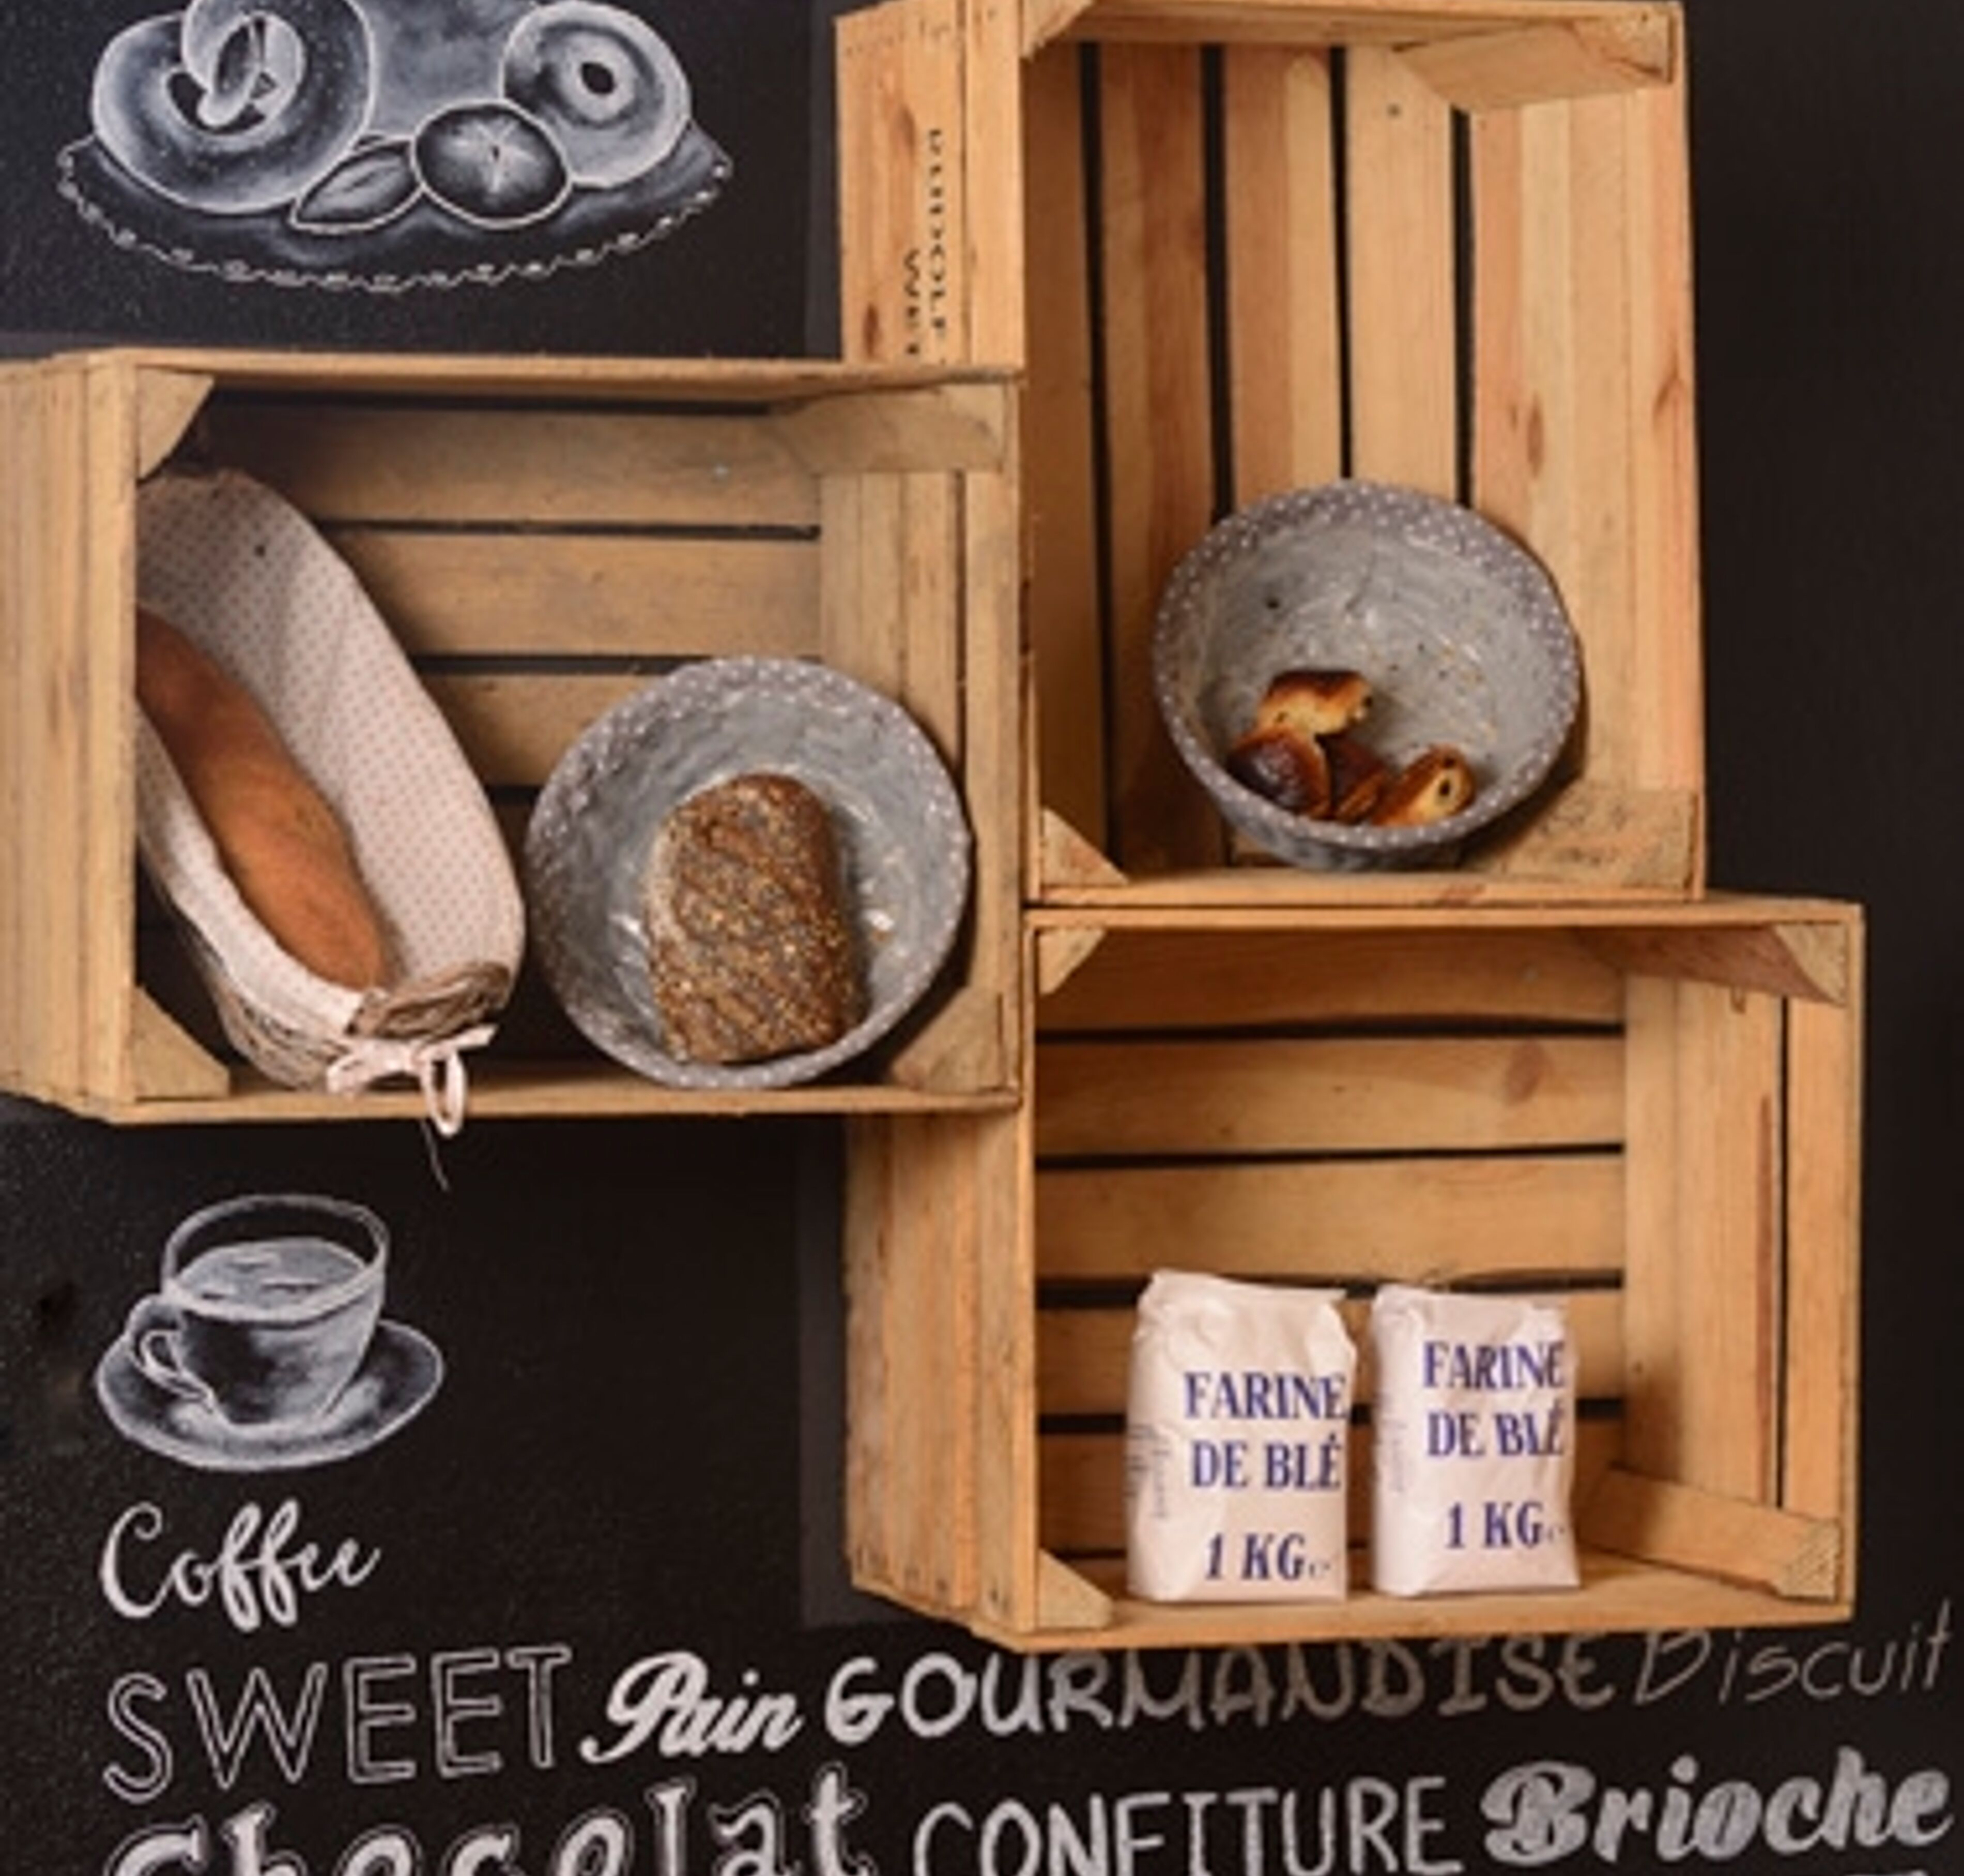 FARINE
DE BLÉ
1 KG
FARINE
DE BLÉ
1 KG
Coffee
SWEET Pain GOURMANDISE Biscuit
Chocolat CONFITURE Brioche